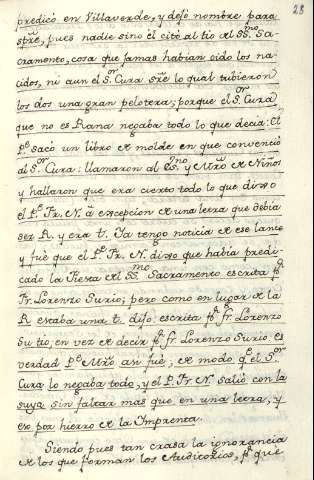 28
predicó en Villaverde, y dejó nombre para
spre, pues nadie sino él citó al tio del SSmo Sa-
cramento, cosa que jamas habian oido los na-
cidos, ni aun el Sor Cura sre lo qual tubieron
los dos una gran pelotera; porque el Sor Cura
que no es Rana negaba todo lo que decia: el
Pe sacó un libro de molde en que convenció
al Sor Cura: llamaron al Esno y Mro de Niños
y hallaron que era cierto todo lo que dixo
el Pe Fr. N. á excepcion de una letra que debia
ser R. y era t. Ya tengo noticia de ese lance
y fue que el Pe Fr. N. dixo que habia predi-
cado la Fiesta del SSmo Sacramento escrita pr
Fr. Lorenzo Surio; pero como en lugar de la
R estaba una t. dijo escrita pr fr. Lorenzo
Su tio, en vez de decir pr fr. Lorenzo Surio. es
verdad Pe Mro asi fue; de modo qe el Sor
Cura lo negaba todo, y el P. Fr. N. salió con la
suya sin faltar mas que en una letra, y
eso por hierro de la Imprenta.
Siendo pues tan crasa la ignorancia
de los que forman los Auditorios, pr que